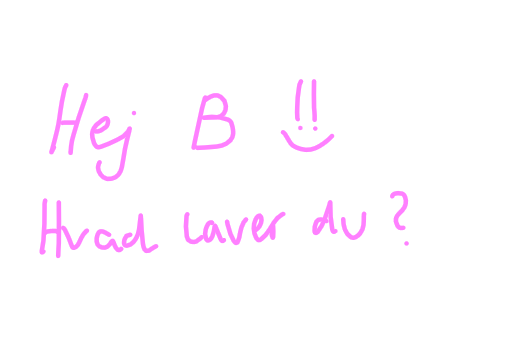 Hej B !!
Hvad laver du?